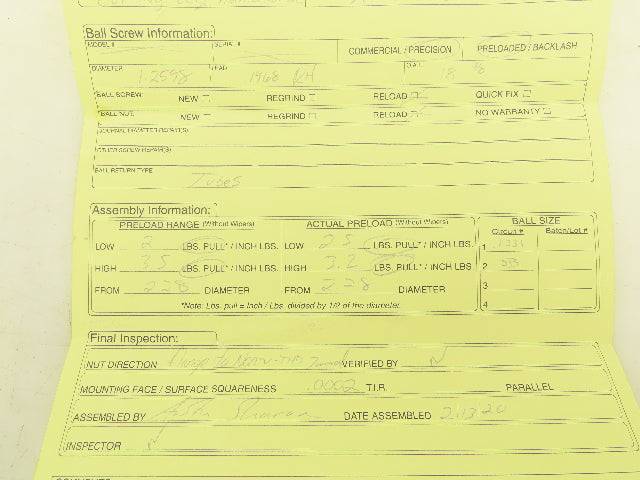 Ball Screw Information:
MODEL # SERIAL # COMMERCIAL / PRECISION PRELOADED / BACKLASH
DIAMETER 1.2598 LEAD .1968 RH O.A.L. 18
BALL SCREW: NEW REGRIND RELOAD QUICK FIX
BALL NUT: NEW REGRIND RELOAD NO WARRANTY
JOURNAL DIAMETER REPAIR(S)
OTHER SCREW REPAIR(S)
BALL RETURN TYPE Tubes
Assembly Information:
PRELOAD RANGE (Without Wipers) ACTUAL PRELOAD (Without Wipers) BALL SIZE
Circuit # Batch/Lot #
LOW 2 LBS. PULL* / INCH LBS. LOW 2.5 LBS. PULL* / INCH LBS. 1
HIGH 3.5 LBS. PULL* / INCH LBS. HIGH 3.2 LBS. PULL* / INCH LBS. 2
FROM .228 DIAMETER FROM .228 DIAMETER 3
*Note: Lbs. pull = Inch / Lbs. divided by 1/2 of the diameter. 4
Final Inspection:
NUT DIRECTION VERIFIED BY
MOUNTING FACE / SURFACE SQUARENESS .0002 T.I.R. PARALLEL
ASSEMBLED BY DATE ASSEMBLED 2.13.20
INSPECTOR
COMMENTS